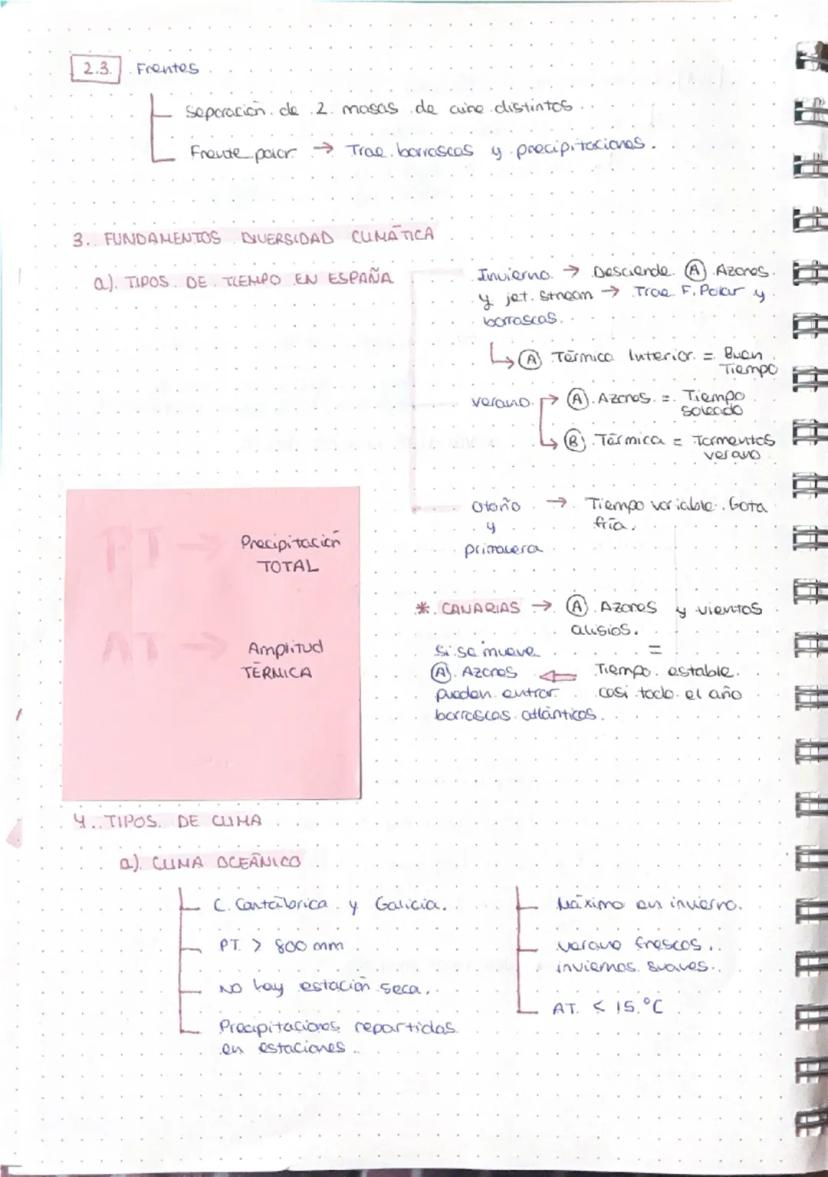 2.3. Frentes
Separación de 2 masas de aire distintos.
Frente polar → Trae borrascas y precipitaciones.
3. FUNDAMENTOS DIVERSIDAD CLIMÁTICA
a). TIPOS DE TIEMPO EN ESPAÑA
Invierno → Desciende (A) Azores
y jet stream → Trae F. Polar y
borrascas.
↳ (A) Térmico Interior = Buen
Tiempo
Verano → (A) Azores = Tiempo
soleado
↳ (B) Térmica = Tormentas
verano
Otoño → Tiempo variable. Gota
y fría.
primavera
PT → Precipitación
TOTAL
AT → Amplitud
TÉRNICA
* CANARIAS → (A) Azores y vientos
alisios.
=
Tiempo estable
casi todo el año
Si se mueve ⇐
(A) Azores
pueden entrar
borrascas atlánticas.
4. TIPOS DE CLIMA
a). CLIMA OCEÁNICO
C. Cantábrica y Galicia.
PT. > 800 mm
No hay estación seca.
Precipitaciones repartidas
en estaciones.
Máximo en invierno.
Verano frescos.
inviernos suaves.
AT. < 15.°C